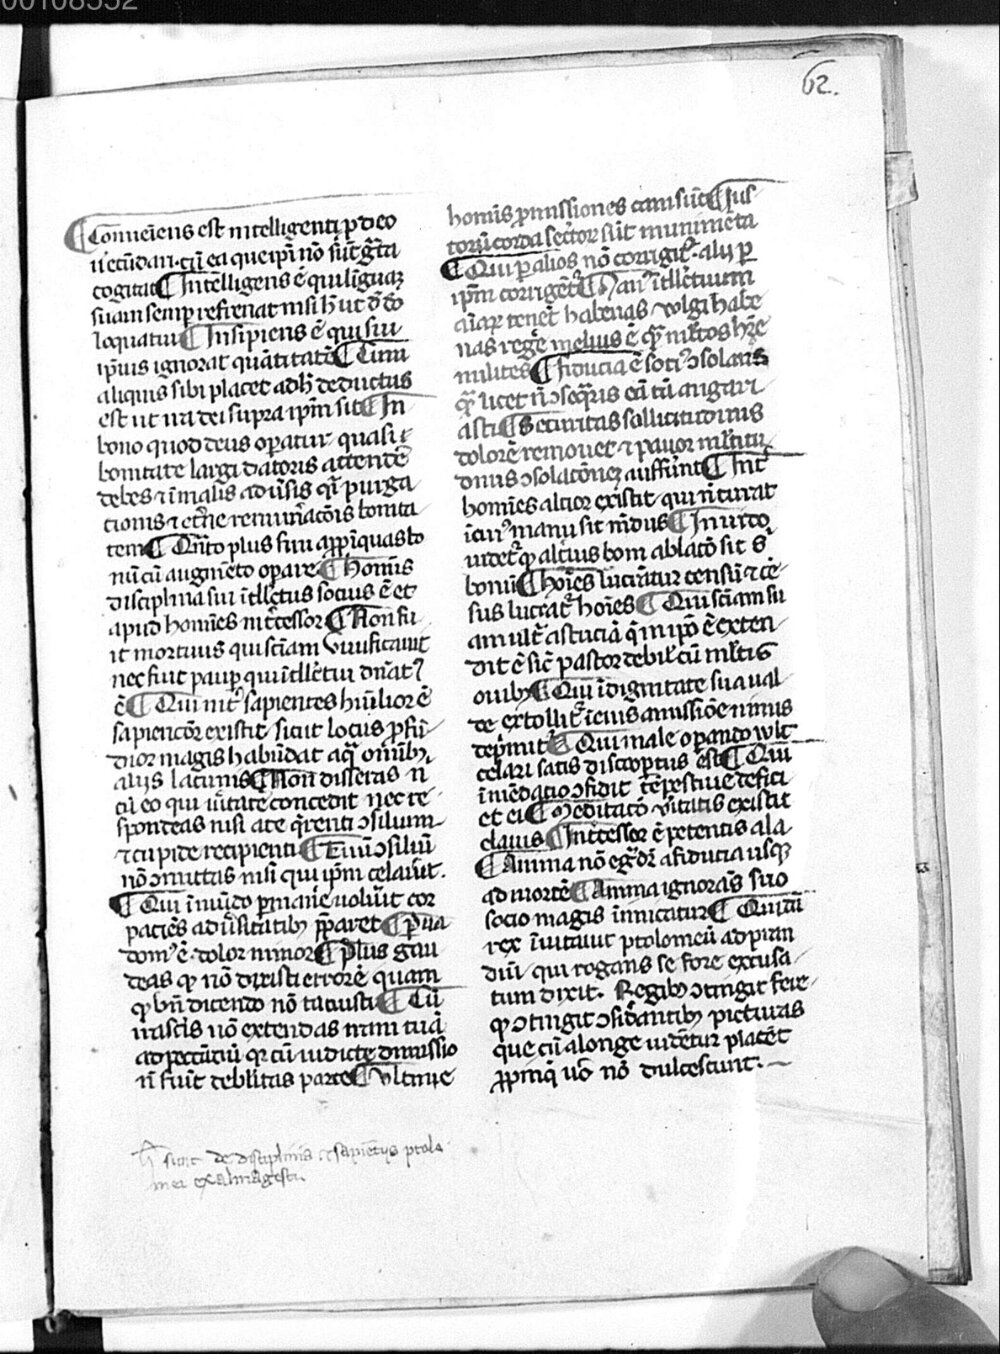 00108552
62.
¶ Conueniens est intelligenti p deo
uecūdari cū ea que ipī nō sūt grata
cogitat ¶ Intelligens ē qui linguaȝ
suam semp refrenat nisi h ut d deo
loquatur ¶ Insipiens ē qui sui
ipius ignorat quātitatē ¶ Cum
aliquis sibi placet adh deductus
est ut ira dei supra ipm sit ¶ In
bono quod deus opatur quasi
bonitate largi datoris attende
debes ⁊ i malis aduersis qi purga
tionis ⁊ etne remunatōis bonita
tem ¶ Quāto plus fini appīquas bo
nū cū augmēto opare ¶ Hominis
disciplina sui itellctus socius ē et
apud homines intcessor ¶ Non fu
it mortuus qui sciam uiuificauit
nec fuit paup qui itellctui dnat
ē ¶ Qui int sapientes humilior ē
sapientior existit sicut locus pfū
dior magis habūdat aq omib
alijs lacunis ¶ Non disseras n
cū eo qui uitate concedit nec re
spondeas nisi ate qrenti ɔsilium
⁊ cupide recipienti ¶ Tuū ɔsiliū
nō ɔmittas nisi qui ipm celauit.
¶ Qui i mūdo pmanē uoluit cor
paciēs aduersitatib pparet ¶ Pua
dom ē dolor minor ¶ Plus gau
deas qp nō dixisti errorē quam
qp bn dicendo nō tacuisti ¶ Cū
irascis nō extendas manū tuā
ad peccatū qr cū iudicte dimissio
n fuit debilitas parce ¶ Vltime
hominis pmissiones cam sūt ¶ Jus
torū corda sector sūt munimēta
¶ Qui p alios nō corrigit alij p
ipm corrigēt ¶ Nam itellctuum
aīar tenet habenas uolgi habe
nas regē melius ē qp mltos hre
milites ¶ Fiducia ē soci ɔsolans
qp licet n ɔseqris eā tū augari
asti ¶ Securitas sollicitudinis
dolorē remouet ⁊ pauor mltitu
dinis ɔsolatōnez auffert ¶ Int
homies altior existit qui n curat
i cui manu sit mdus ¶ In mūdo
uidet qp alcius bom ablatō sit s
bonū ¶ Hoies lucrātur censū ⁊ cē
sus lucrat hoies ¶ Qui sciam su
am ult astuciā q in ipo ē exten
dit ē sic pastor debil cū mltis
ouib ¶ Qui i dignitate sua ual
de extollit i eius amissiōe nimis
depmit ¶ Qui male opando uult
celari satis discooptus est ¶ Qui
i mēdatio ɔfidit tēpestiue defici
et ei ¶ Meditatō uitatis existit
clauis ¶ Intcessor ē petentis ala
¶ Anima nō egdr a fiducia usqȝ
ad mortē ¶ Anima ignorās suo
socio magis inimicatur ¶ Quidā
rex iuitauit ptolomeū ad pran
diū qui rogans se fore excusa
tum dixit. Regib ɔtingit fere
qp ɔtingit ɔsidantib picturas
que cū alonge uidētur placēt
ppinq uo nō dulcescunt.
sunt de disciplinis ⁊ sapientijs ptolo
mei ex almagesti.